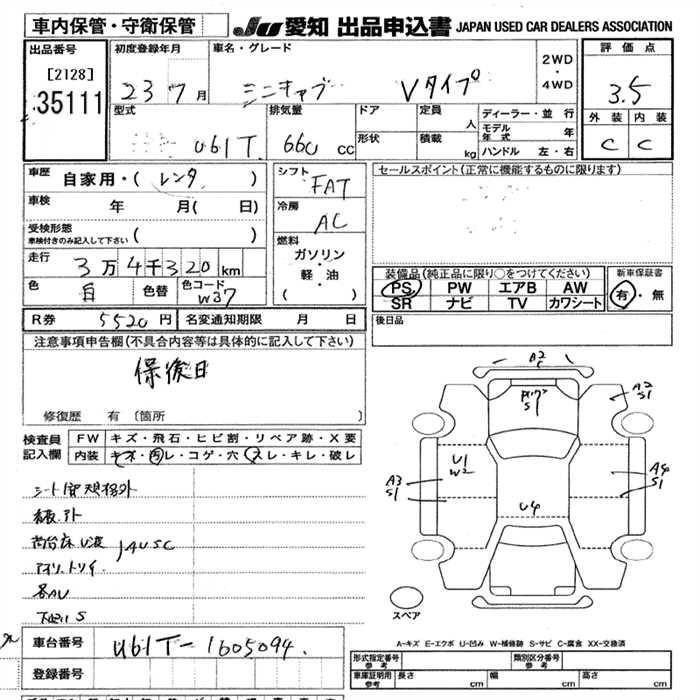 車内保管・守衛保管
JU 愛知 出品申込書 JAPAN USED CAR DEALERS ASSOCIATION
出品番号
[2128]
35111
初度登録年月
23 7月
車名・グレード
ミニキャブ Vタイプ
2WD
・
4WD
評価点
3.5
外装 内装
C C
型式
U61T
排気量
660 cc
ドア
形状
定員
人
積載
kg
ディーラー・並行
モデル年式 年
ハンドル 左・右
車歴
自家用・( レンタ )
車検
年 月( 日)
受検形態
車検付きのみ記入して下さい ( )
走行
3万4千320km
色
白
色替
色コード
W37
シフト
FAT
冷房
AC
燃料
ガソリン
・
軽・油
( )
セールスポイント(正常に機能するものに限ります)
装備品(純正品に限り○をつけてください)
PS PW エアB AW
SR ナビ TV カワシート
新車保証書
有・無
後日品
R券 5520円 名変通知期限 月 日
注意事項申告欄(不具合内容等は具体的に記入して下さい)
保後日
修復歴 有 〔箇所 〕
検査員
記入欄
FW キズ・飛石・ヒビ割・リペア跡・X要
内装 キズ・汚レ・コゲ・穴・スレ・キレ・破レ
荷台床U波 JAUSC
各AU
下廻りS
A2
S1
A2
S1
U1
W2
A3
S1
A4
S1
U4
スペア
A-キズ E-エクボ U-凹み W-補修跡 S-サビ C-腐食 XX-交換済
車台番号 U61T-1605094
登録番号
形式指定番号
参考
類別区分番号
参考
車庫証明用
参考
長さ cm 幅 cm 高さ cm